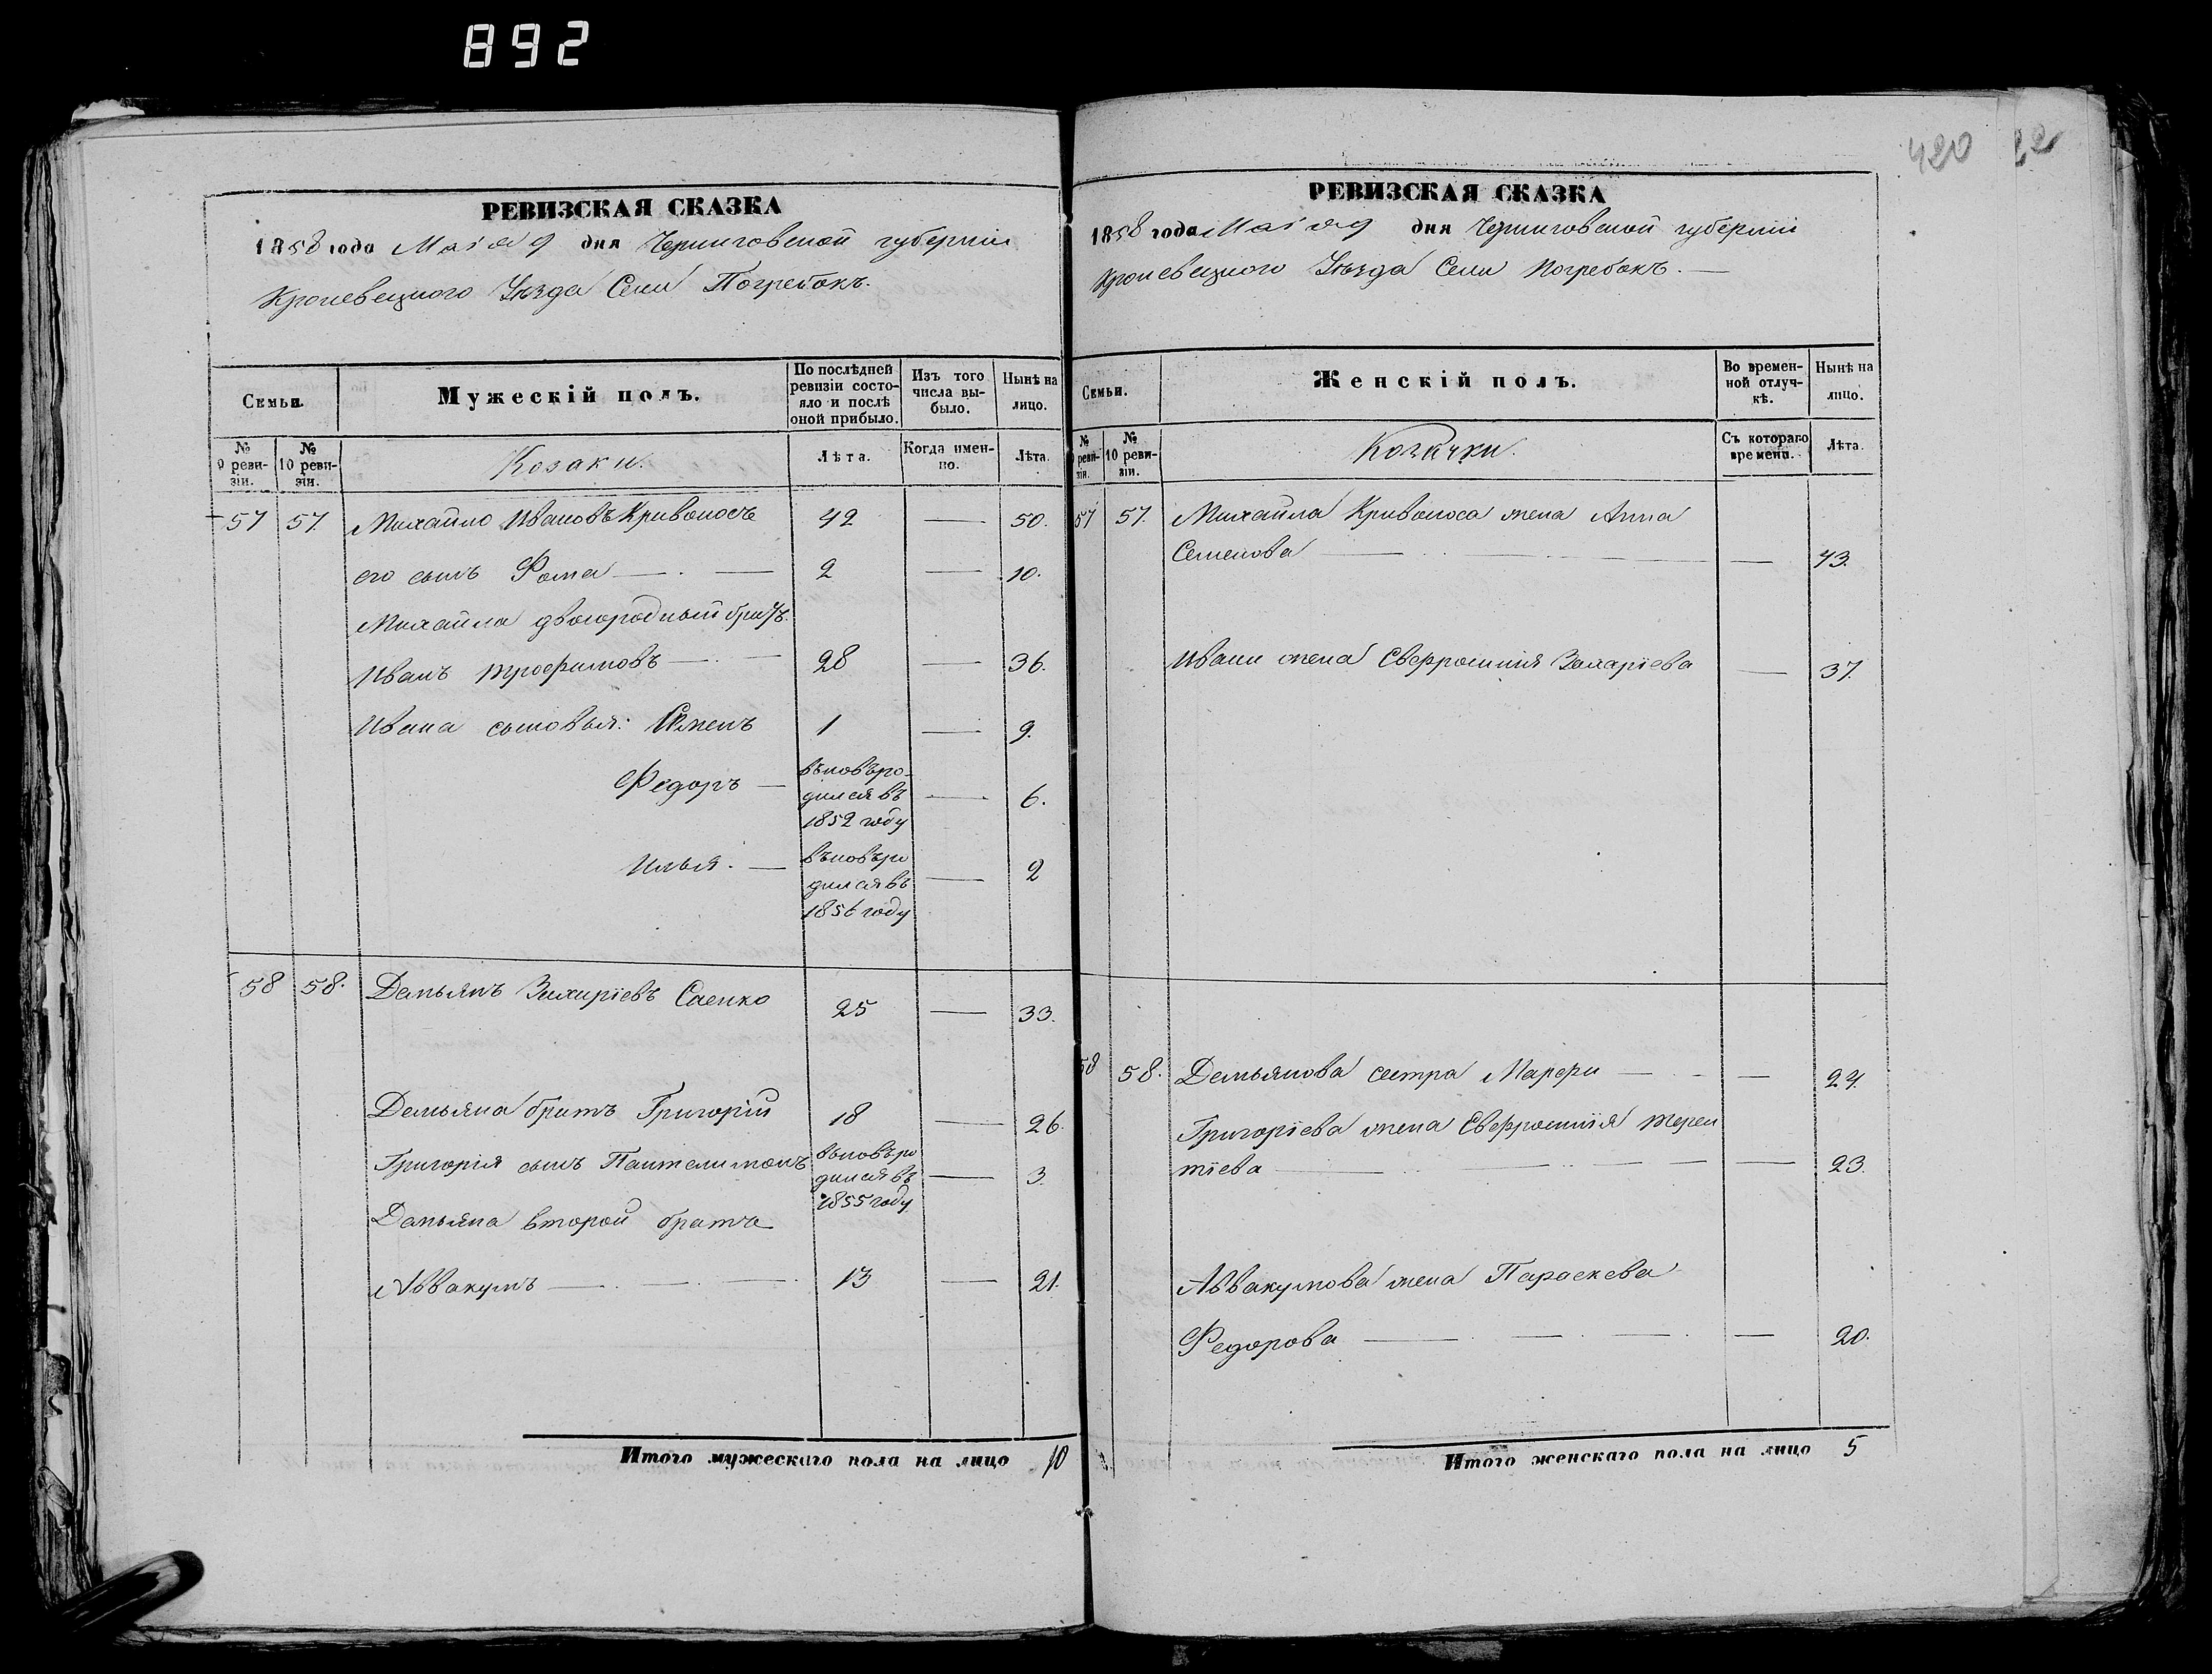 892
420 22
РЕВИЗСКАЯ СКАЗКА
1858 года Маія 9 дня Черниговской губерніи
Кролевецкого Уѣзда Села Погребокъ.
Семьи.
Мужескій полъ.
По послѣдней ревизіи состояло и послѣ оной прибыло.
Изъ того числа выбыло.
Нынѣ на лицо.
№ 9 ревизіи.
№ 10 ревизіи.
Козаки.
Лѣта.
Когда именно.
Лѣта.
57 57. Михайло Ивановъ Кривоносъ 42 — 50.
его сынъ Фома — . — 2 — 10.
Михайла двоюродный братъ.
Иванъ Трофимовъ — . — 28 — 36.
Ивана сыновья: Семенъ 1 — 9.
Федоръ — въновъ ро-
дился въ — 6.
1852 году
Илья. — въновъ ро
дился въ — 2
1856 году
58 58. Демьянъ Захаріевъ Саенко 25 — 33.
Демьяна братъ Григорій 18 — 26.
Григорія сынъ Пантелимонъ въновъ ро
дился въ — 3.
1855 году
Демьяна второй братъ
Аввакумъ — . — . — . 13 — 21.
Итого мужескаго пола на лицо 10
РЕВИЗСКАЯ СКАЗКА
1858 года Маія 9 дня Черниговской губерніи
Кролевецкого Уѣзда Села Погребокъ. —
Семьи.
Женскій полъ.
Во временной отлучкѣ.
Нынѣ на лицо.
№ ревизіи.
№ 10 ревизіи.
Козачки.
Съ котораго времени.
Лѣта.
57 57. Михайла Кривоноса жена Анна
Семенова — — 43.
Ивана жена Евфросинія Захаріева — 37.
58 58. Демьянова сестра Марфа — - — 24.
Григоріева жена Евфросинія Терен
тіева — — 23.
Аввакумова жена Параскева
Федорова — . — . — . — 20.
Итого женскаго пола на лицо 5